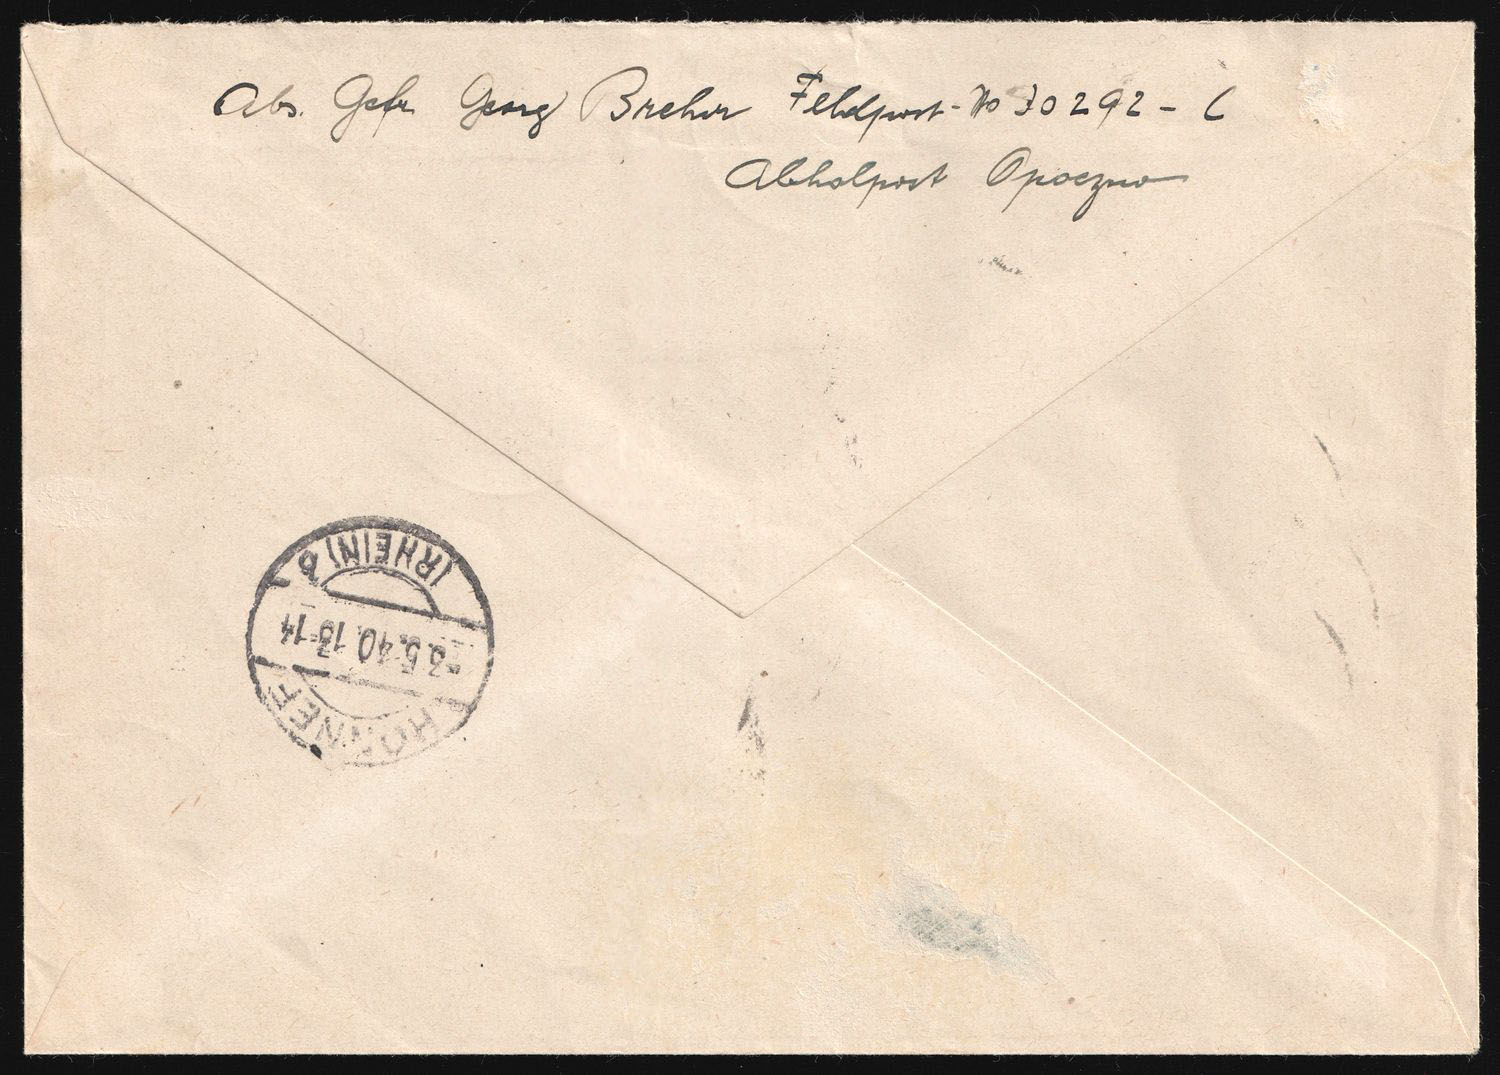 Abs. Gefr. Georg Brehm Feldpost-No 30292 - C
Abholpost Opoczno
HONNEF
-3.5.40.13-14
(RHEIN) b